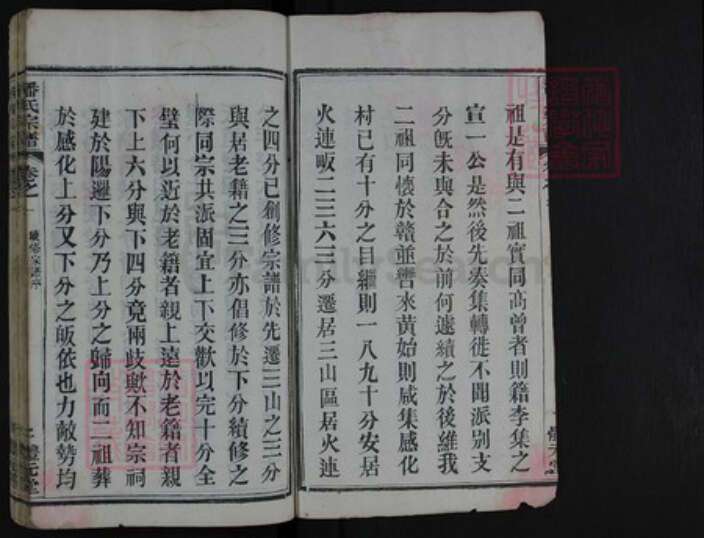 祖是有與二祖實同高曾者則籍李集之
宣一公是然後先奏集轉徙不聞派别支
分旣未與合之於前何遽續之於後維我
二祖同懷於贛並轡來黃始則咸集感化
村已有十分之目繼則一八九十分安居
火連畈二三六三分遷居三山區居火連
之四分已創修宗譜於先遷三山之三分
與居老籍之三分亦倡修於下分續修之
際同宗共派固宜上下交歡以完十分全
璧何以近於老籍者親上遠於老籍者親
下上六分與下四分竟兩歧歟不知宗祠
建於陽邏下分乃上分之歸向而二祖葬
於感化上分又下分之皈依也力敵勢均
潘氏宗譜
卷之一
二